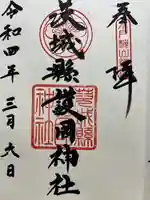 奉拝
茨城縣護国神社
茨城縣
神社
令和四年三月六日